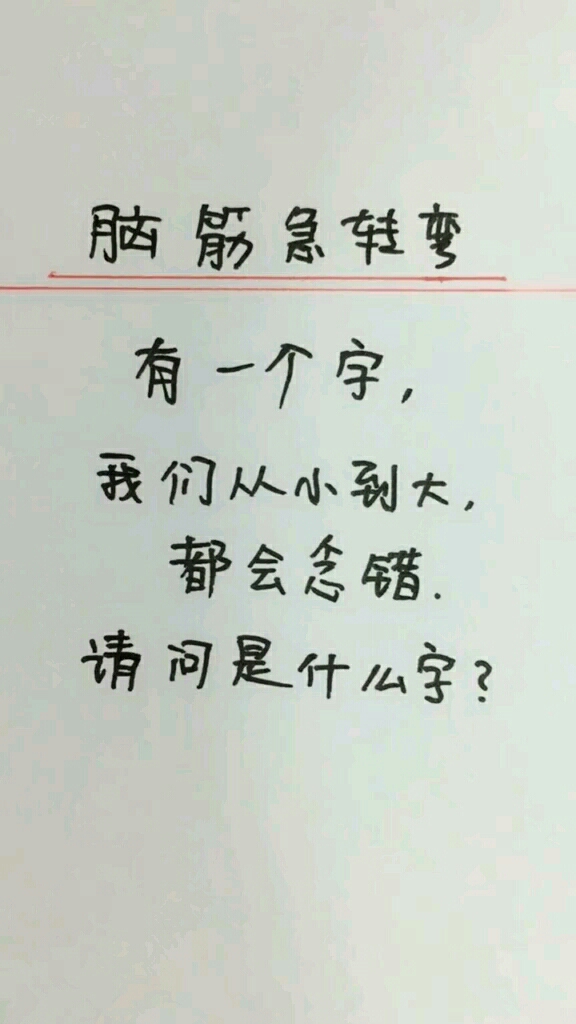 脑筋急转弯
有一个字，
我们从小到大，
都会念错.
请问是什么字?